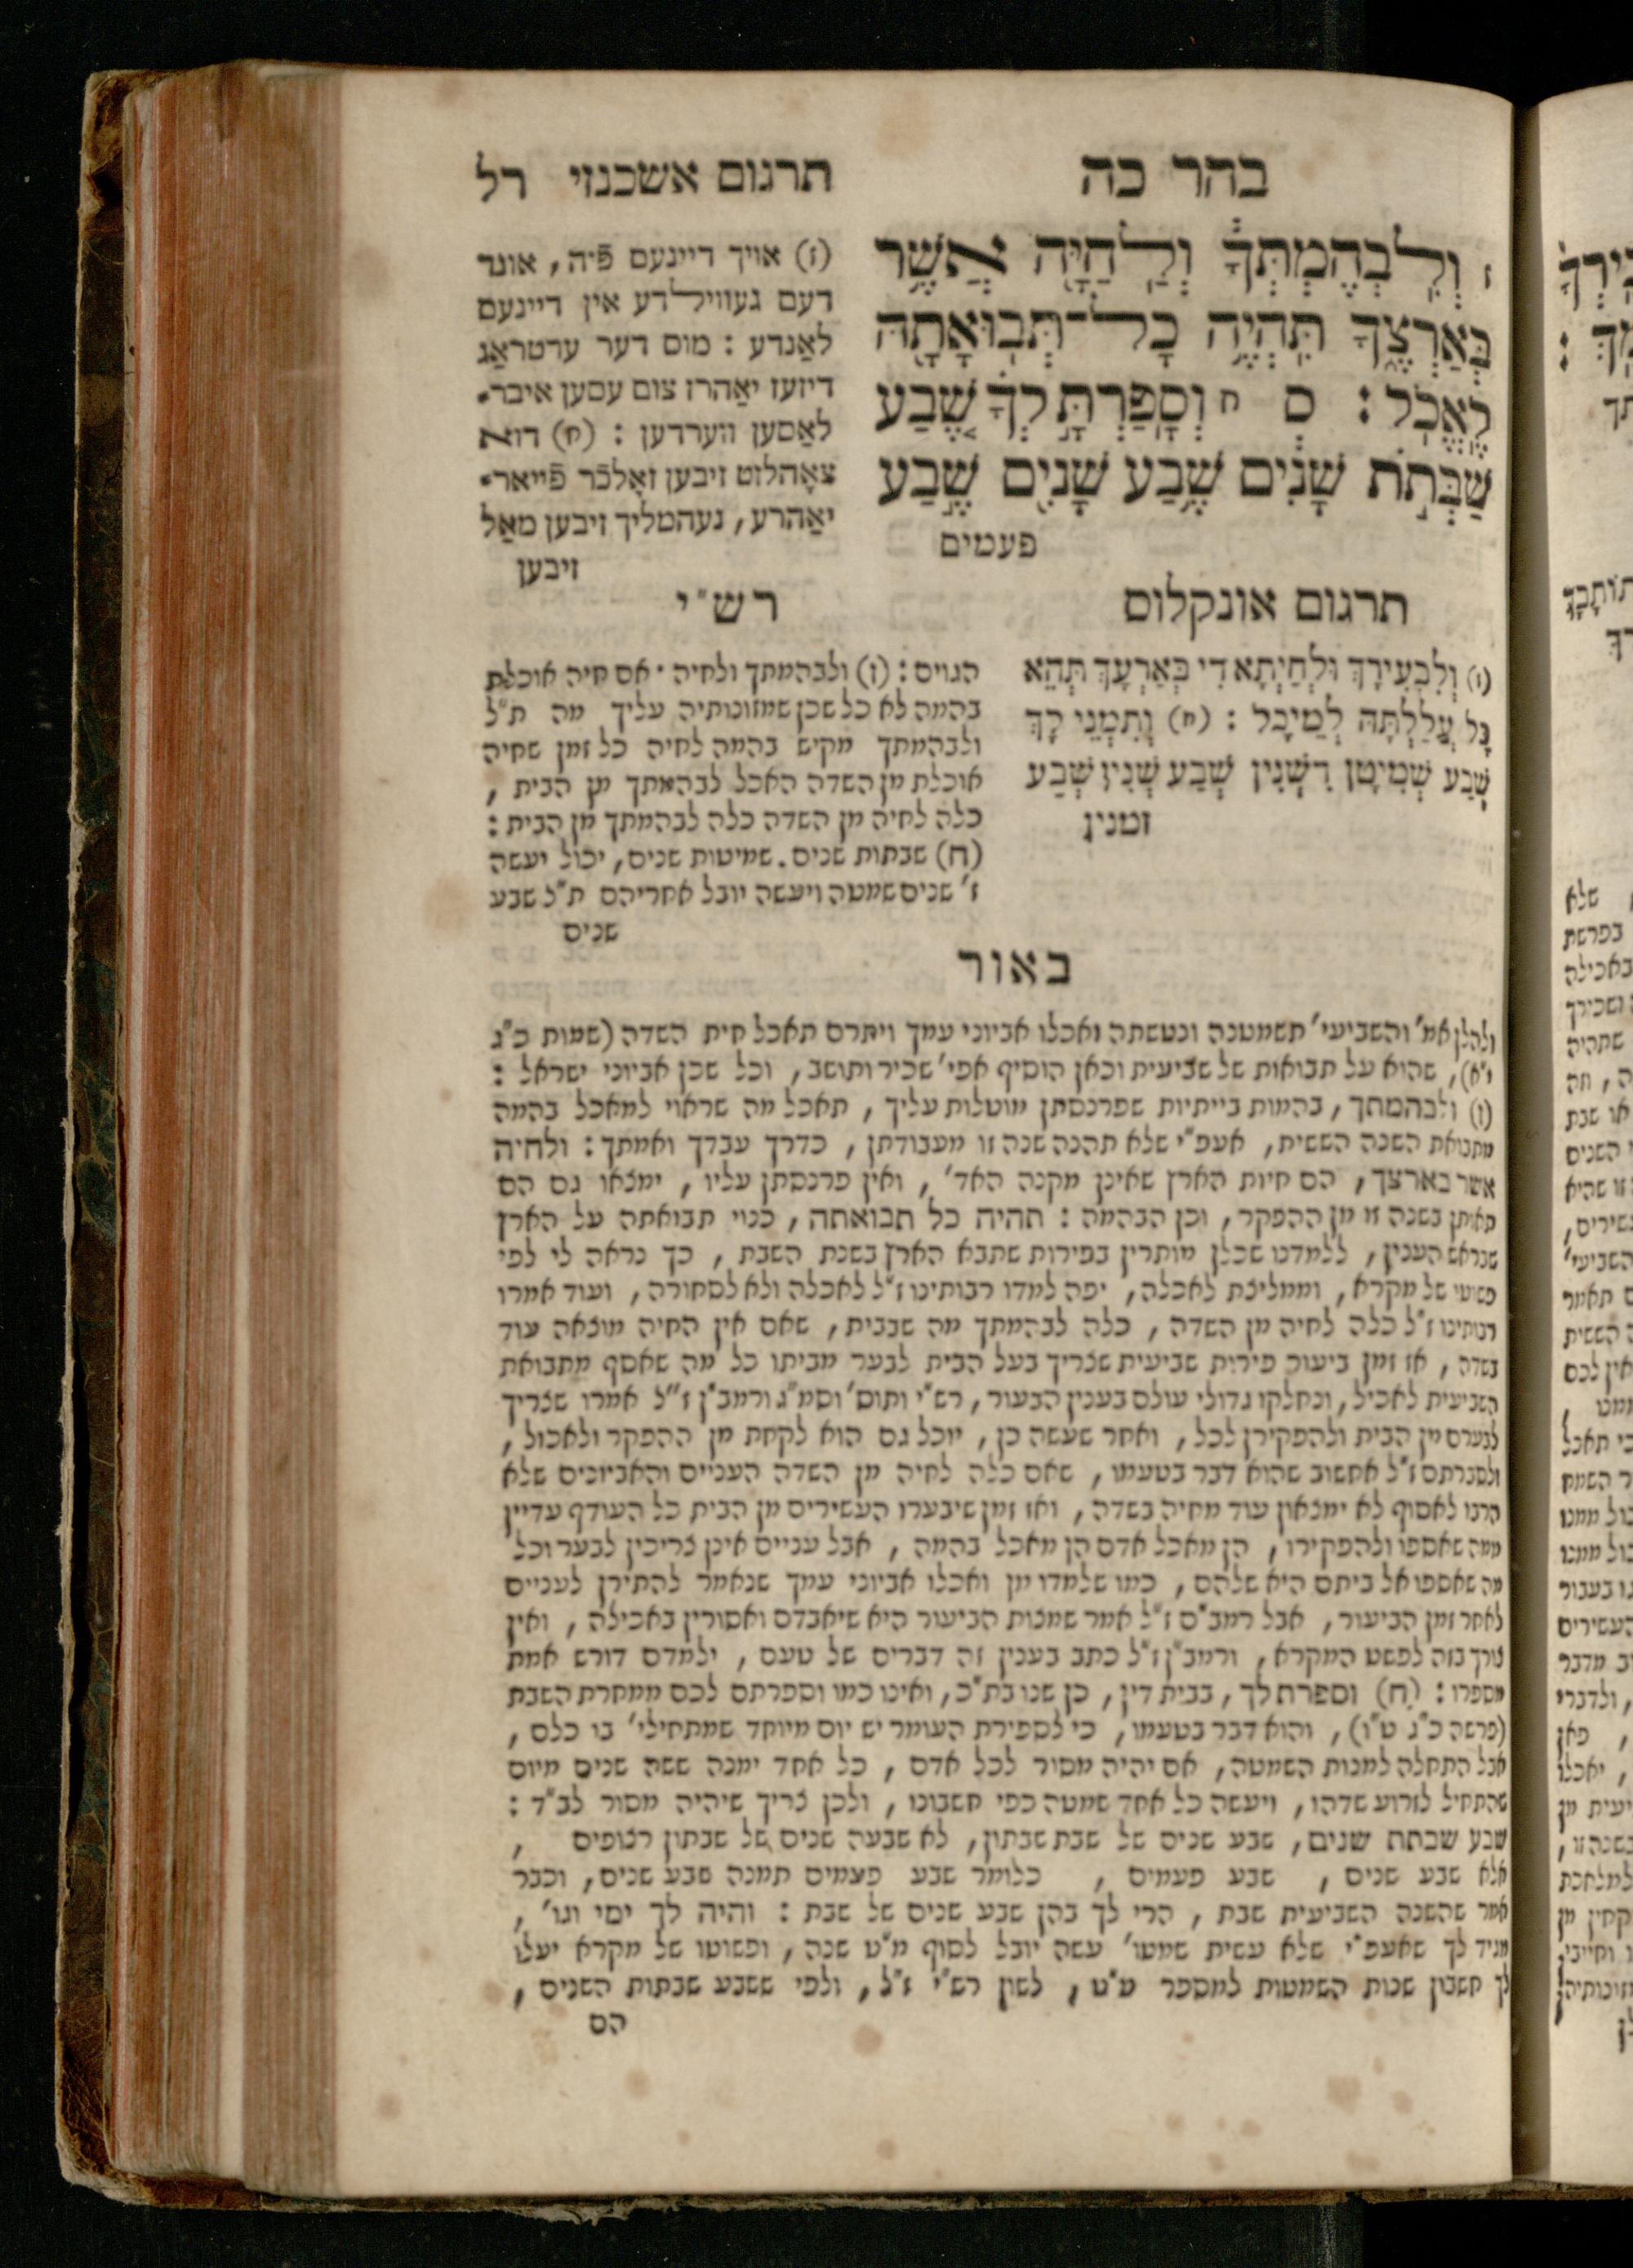 בהר כה
תרגום אשכנזי רל
ז וְלִבְהֶמְתְּךָ֔ וְלַֽחַיָּ֖ה אֲשֶׁ֣ר
בְּאַרְצֶ֑ךָ תִּהְיֶ֥ה כָל־תְּבוּאָתָ֖הּ
לֶאֱכֹֽל : ס ח וְסָפַרְתָּ֣ לְךָ֗ שֶׁ֚בַע
שַׁבְּתֹ֣ת שָׁנִ֔ים שֶׁ֥בַע שָׁנִ֖ים שֶׁ֣בַע
פעמים
(ז) אויך דיינעם פֿיה, אונד
דעם געווילדע אין דיינעם
לאַנדע : מוס דער ערטראַג
דיזעז יאַהרז צום עסען איבר־
לאַסען ווערדען : (ח) דוא
צאָהלזט זיבען זאָלכֿר פֿייאר־
יאַהרע, נעהמליך זיבען מאַל
זיבען
תרגום אונקלוס
(ז) וְלִבְעִירָךְ וּלְחַיְתָא דִי בְּאַרְעָךְ תְּהֵא
כָל עֲלַלְתַּהּ לְמֵיכָל : (ח) וְתִמְנֵי לָךְ
שְׁבַע שְׁמִיטָן דִּשְׁנִין שְׁבַע שְׁנִין שְׁבַע
זמנין
רש״י
הגוים : (ז) ולבהמתך ולחיה · אם חיה אוכלת
בהמה לא כל שכן שמזונותיה עליך מה ת״ל
ולבהמתך מקיש בהמה לחיה כל זמן שחיה
אוכלת מן השדה האכל לבהמתך מן הבית ,
כלה לחיה מן השדה כלה לבהמתך מן הבית :
(ח) שבתות שנים . שמיטות שנים, יכול יעשה
ז׳ שנים שמטה ויעשה יובל אחריהם ת״ל שבע
שנים
באור
ולהלן אמ׳ והשביעי׳ תשמטנה ונטשתה ואכלו אביוני עמך ויתרם תאכל חית השדה (שמות כ״ג
י״א), שהוא על תבואות של שביעית וכאן הוסיף אפי׳ שכיר ותושב, וכל שכן אביוני ישראל :
(ז) ולבהמתך, בהמות בייתיות שפרנסתן מוטלות עליך, תאכל מה שראוי למאכל בהמה
מתבואת השנה הששית, אעפ״י שלא תהנה שנה זו מעבודתן, כדרך עבדך ואמתך : ולחיה
אשר בארצך, הם חיות הארץ שאינן מקנה האד׳, ואין פרנסתן עליו, ימצאו גם הם
מאותן בשנה זו מן ההפקר, וכן הבהמה : תהיה כל תבואתה, כנוי תבואתה על הארץ
שבראש הענין, ללמדנו שכלן מותרין בפירות שתבא הארץ בשנת השבת, כך נראה לי לפי
פשוטו של מקרא, וממליצת לאכלה, יפה למדו רבותינו ז״ל לאכלה ולא לסחורה, ועוד אמרו
רבותינו ז״ל כלה לחיה מן השדה, כלה לבהמתך מה שבבית, שאם אין החיה מוצאה עוד
בשדה, אז זמן ביעור פירות שביעית שצריך בעל הבית לבער מביתו כל מה שאסף מתבואת
השביעית לאכיל, ונחלקו גדולי עולם בענין הבעור, רש״י ותוס׳ וסמ״ג ורמב״ן ז״ל אמרו שצריך
לבערם מן הבית ולהפקירן לכל, ואחר שעשה כן, יוכל גם הוא לקחת מן ההפקר ולאכול,
ולסברתם ז״ל אחשוב שהוא דבר בטעמו, שאם כלה לחיה מן השדה העניים והאביונים שלא
הרבו לאסוף לא ימצאון עוד מחיה בשדה, ואז זמן שיבערו העשירים מן הבית כל העודף עדיין
ממה שאספו ולהפקירו, הן מאכל אדם הן מאכל בהמה, אבל עניים אינן צריכין לבער וכל
מה שאספו אל ביתם היא שלהם, כמו שלמדו מן ואכלו אביוני עמך שנאמר להתירן לעניים
לאחר זמן הביעור, אבל רמב״ם ז״ל אמר שמצות הביעור היא שיאבדם ואסורין באכילה, ואין
צורך בזה לפשט המקרא, ורמב״ן ז״ל כתב בענין זה דברים של טעם, ילמדם דורש אמת
מספרו : (ח) וספרת לך, בבית דין, כן שנו בת״כ, ואינו כמו וספרתם לכם ממחרת השבת
(פרשה כ״ג ט״ו), והוא דבר בטעמו, כי לספירת העומר יש יום מיוחד שמתחילי׳ בו כלם,
אבל התחלה למנות השמטה, אם יהיה מסור לכל אדם, כל אחד ימנה ששה שנים מיום
שהתחיל לזרוע שדהו, ויעשה כל אחד שמטה כפי חשבונו, ולכן צריך שיהיה מסור לב״ד :
שבע שבתת שנים, שבע שנים של שבת שבתון, לא שבעה שנים של שבתון רצופים ,
אלא שבע שנים , שבע פעמים , כלומר שבע פעמים תמנה שבע שנים, וכבר
אמר שהשנה השביעית שבת, הרי לך בהן שבע שנים של שבת : והיה לך ימי וגו׳ ,
מגיד לך שאעפ״י שלא עשית שמטו׳ עשה יובל לסוף מ״ט שנה, ופשוטו של מקרא יעלו
לך חשבון שנות השמטות למספר מ״ט, לשון רש״י ז״ל, ולפי ששבע שבתות השנים ,
הם